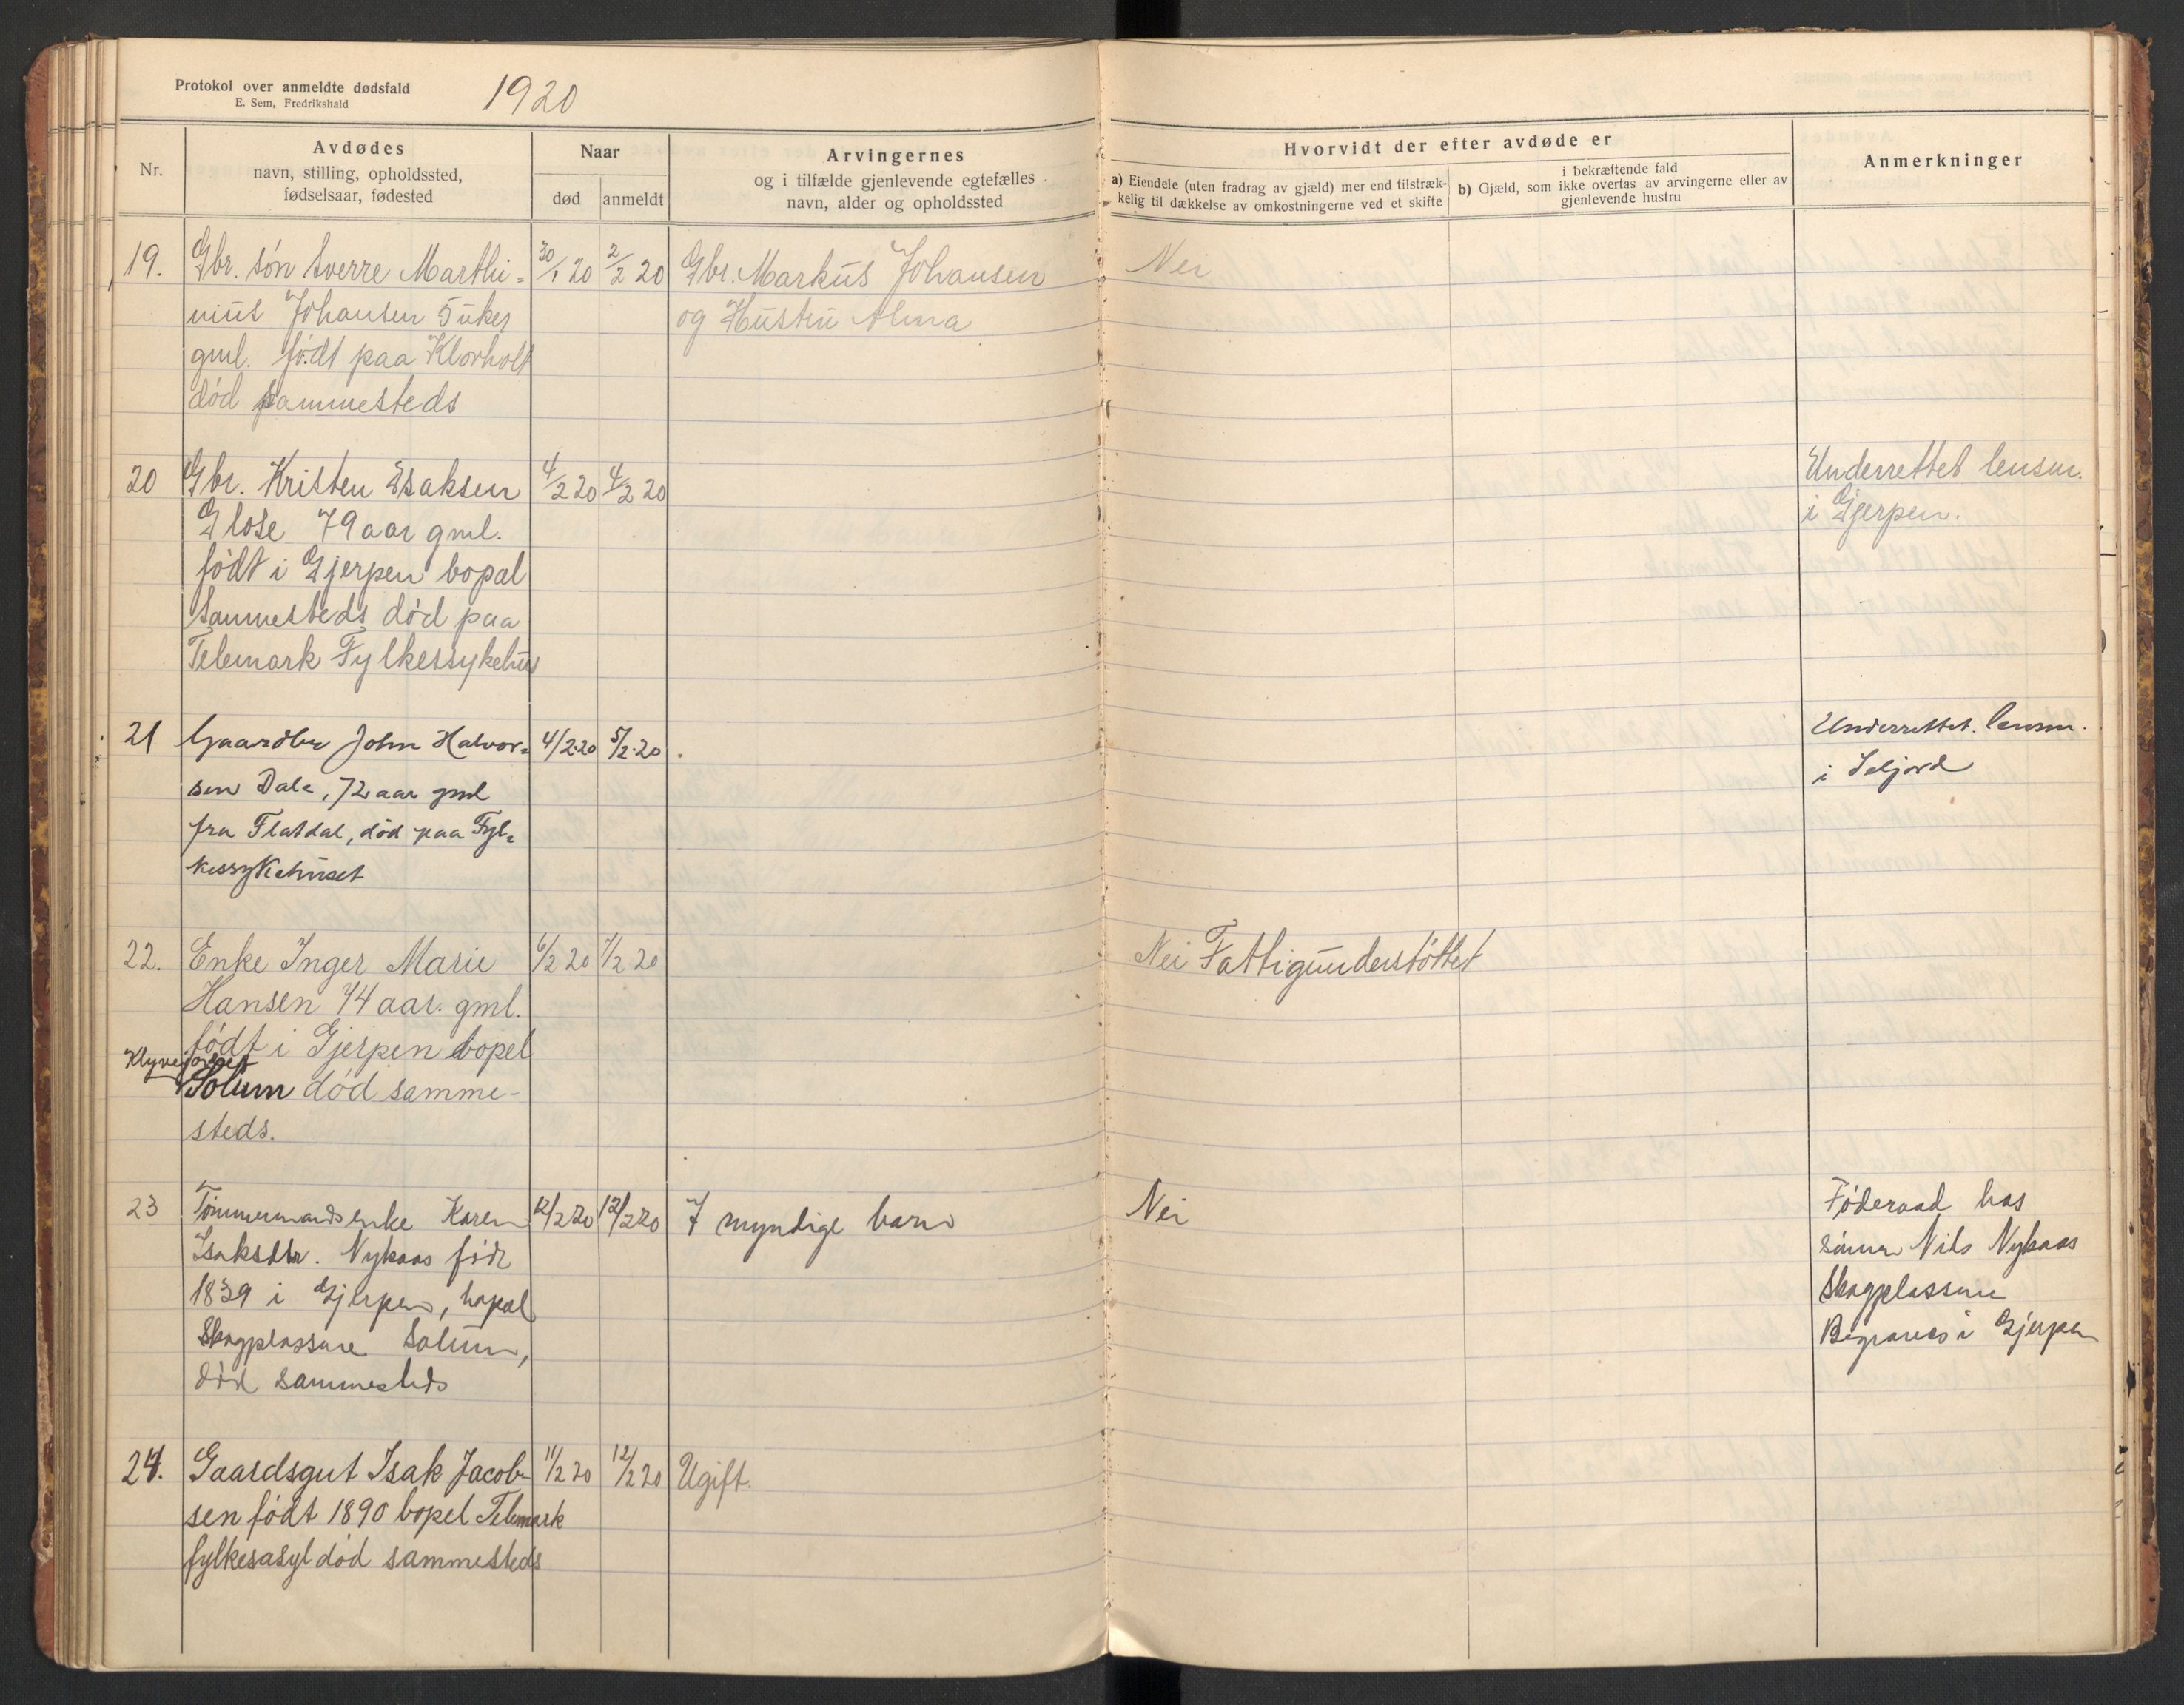 Protokol over anmeldte dødsfald
E. Sem, Fredrikshald
1920
Nr.
Avdødes
navn, stilling, opholdssted,
fødselsaar, fødested
Naar
død
anmeldt
Arvingernes
og i tilfælde gjenlevende egtefælles
navn, alder og opholdssted
Hvorvidt der efter avdøde er
a) Eiendele (uten fradrag av gjæld) mer end tilstræk-
kelig til dækkelse av omkostningerne ved et skifte
i bekræftende fald
b) Gjæld, som ikke overtas av arvingerne eller av
gjenlevende hustru
Anmerkninger
19. Gbr. søn Sverre Marthi= 30/1 20 2/2 20 Gbr. Markus Johansen Nei
nius Johansen 5 uker og Hustru Alma
gml. født paa Klovholt
død sammesteds
20 Gbr. Kristen Esaksen 4/2 20 4/2 20 Underrettet lensm.
Glose 79 aar gml. i Gjerpen.
født i Gjerpen bopal
Sammesteds død paa
Telemark Fylkessykehus
21 Gaardbr John Halvor= 4/2·20 5/2·20 Underrettet. lensm.
sen Dale, 72 aar gml i Seljord
fra Flatdal, død paa Fyl=
kessykehuset
22. Enke Inger Marie 6/2 20 7/2 20 Nei Fattigunderstøttet
Hansen 74 aar. gml.
født i Gjerpen bopel
Klyvejordet
Solum død samme-
steds.
23 Tømmermandsenke Karen 12/2 20 12/2 20 7 myndige barn Nei Føderaad hos
Isaksdtr. Nykaas född sønnen Nils Nykaas
1839 i Gjerpen, bopal Skogplassene
Skogplassene Solum, Begraves i Gjerpen
død sammesteds
24. Gaardsgut Isak Jacob- 11/2 20 12/2 20 Ugift.
sen født 1890 bopel Telemark
fylkesasyl død sammesteds